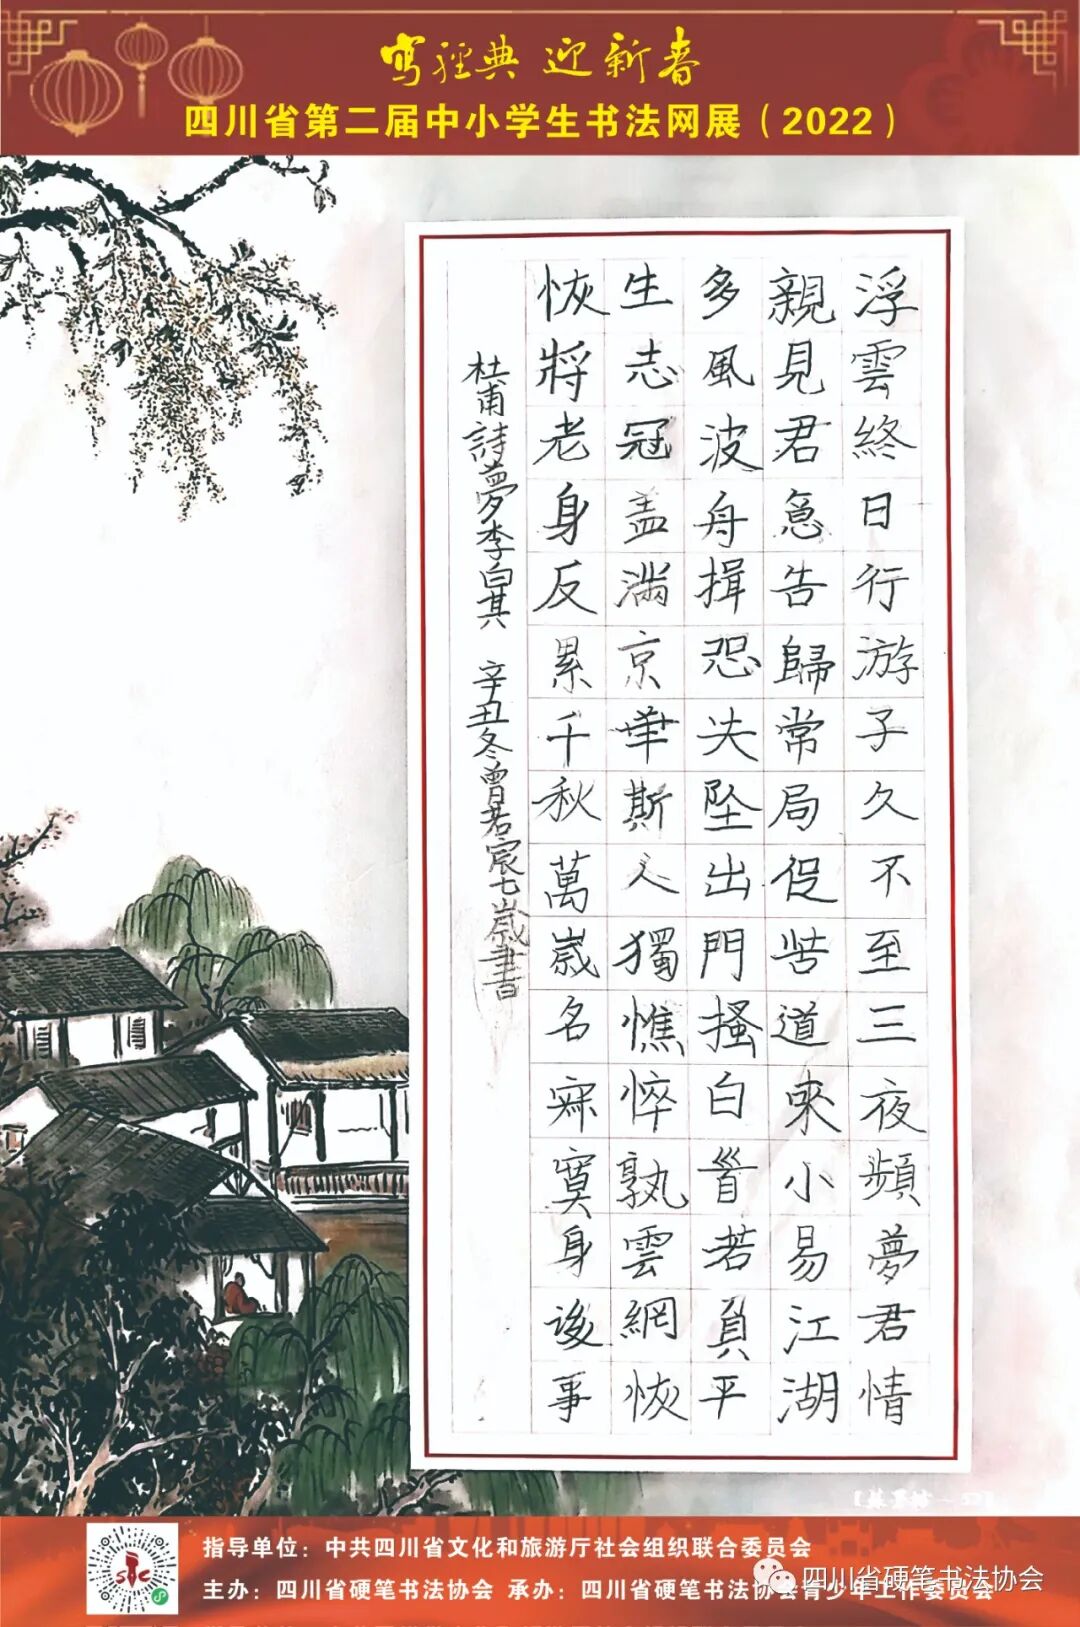 写经典 迎新春
四川省第二届中小学生书法网展（2022）
浮雲終日行游子久不至三夜頻夢君情
親見君急告歸常局促苦道來小易江湖
多風波舟揖恐失墜出門搔白首若負平
生志冠盖滿京華斯人獨憔悴孰雲網恢
恢將老身反累千秋萬歲名寂寞身後事
杜甫詩夢李白其 辛丑冬曾若宸七歲書
指导单位：中共四川省文化和旅游厅社会组织联合委员会
主办：四川省硬笔书法协会 承办：四川省硬笔书法协会青少年工作委员会
四川省硬笔书法协会